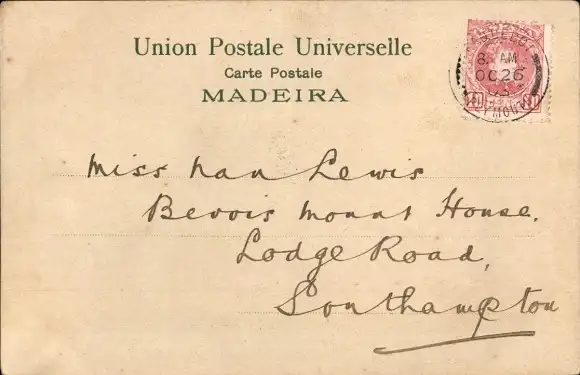 Union Postale Universelle
Carte Postale
MADEIRA
8 AM
OC 26
Miss Nan Lewis
Bevois Mount House.
Lodge Road,
Southampton